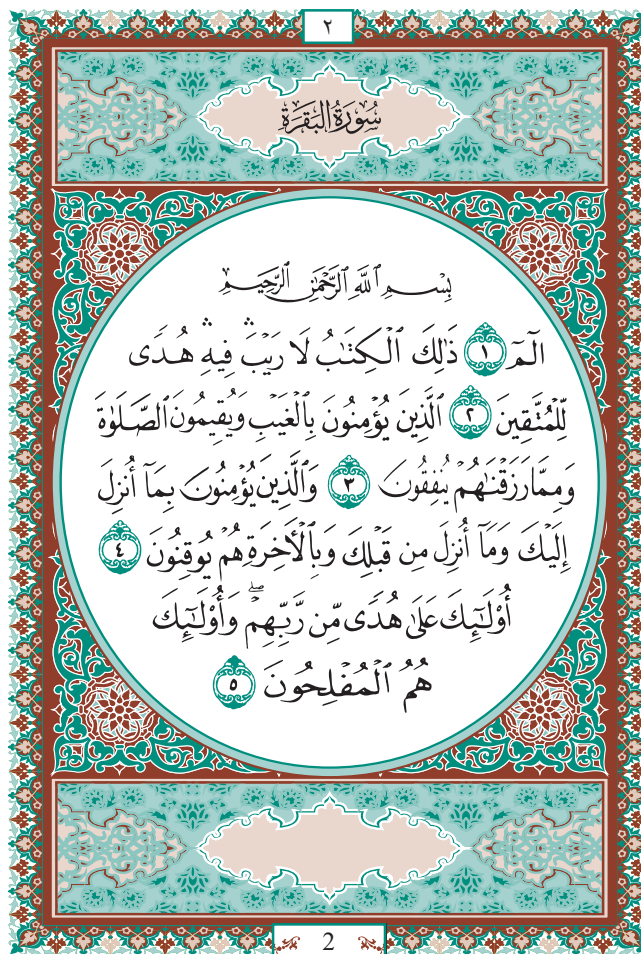 ٢
سُورَةُ البَقَرَةِ
بِسْمِ ٱللَّهِ ٱلرَّحْمَٰنِ ٱلرَّحِيمِ
الٓمٓ ١ ذَٰلِكَ ٱلْكِتَٰبُ لَا رَيْبَ ۛ فِيهِ ۛ هُدًى
لِّلْمُتَّقِينَ ٢ ٱلَّذِينَ يُؤْمِنُونَ بِٱلْغَيْبِ وَيُقِيمُونَ ٱلصَّلَوٰةَ
وَمِمَّا رَزَقْنَٰهُمْ يُنفِقُونَ ٣ وَٱلَّذِينَ يُؤْمِنُونَ بِمَآ أُنزِلَ
إِلَيْكَ وَمَآ أُنزِلَ مِن قَبْلِكَ وَبِٱلْأَخِرَةِ هُمْ يُوقِنُونَ ٤
أُو۟لَٰٓئِكَ عَلَىٰ هُدًى مِّن رَّبِّهِمْ ۖ وَأُو۟لَٰٓئِكَ
هُمُ ٱلْمُفْلِحُونَ ٥
2